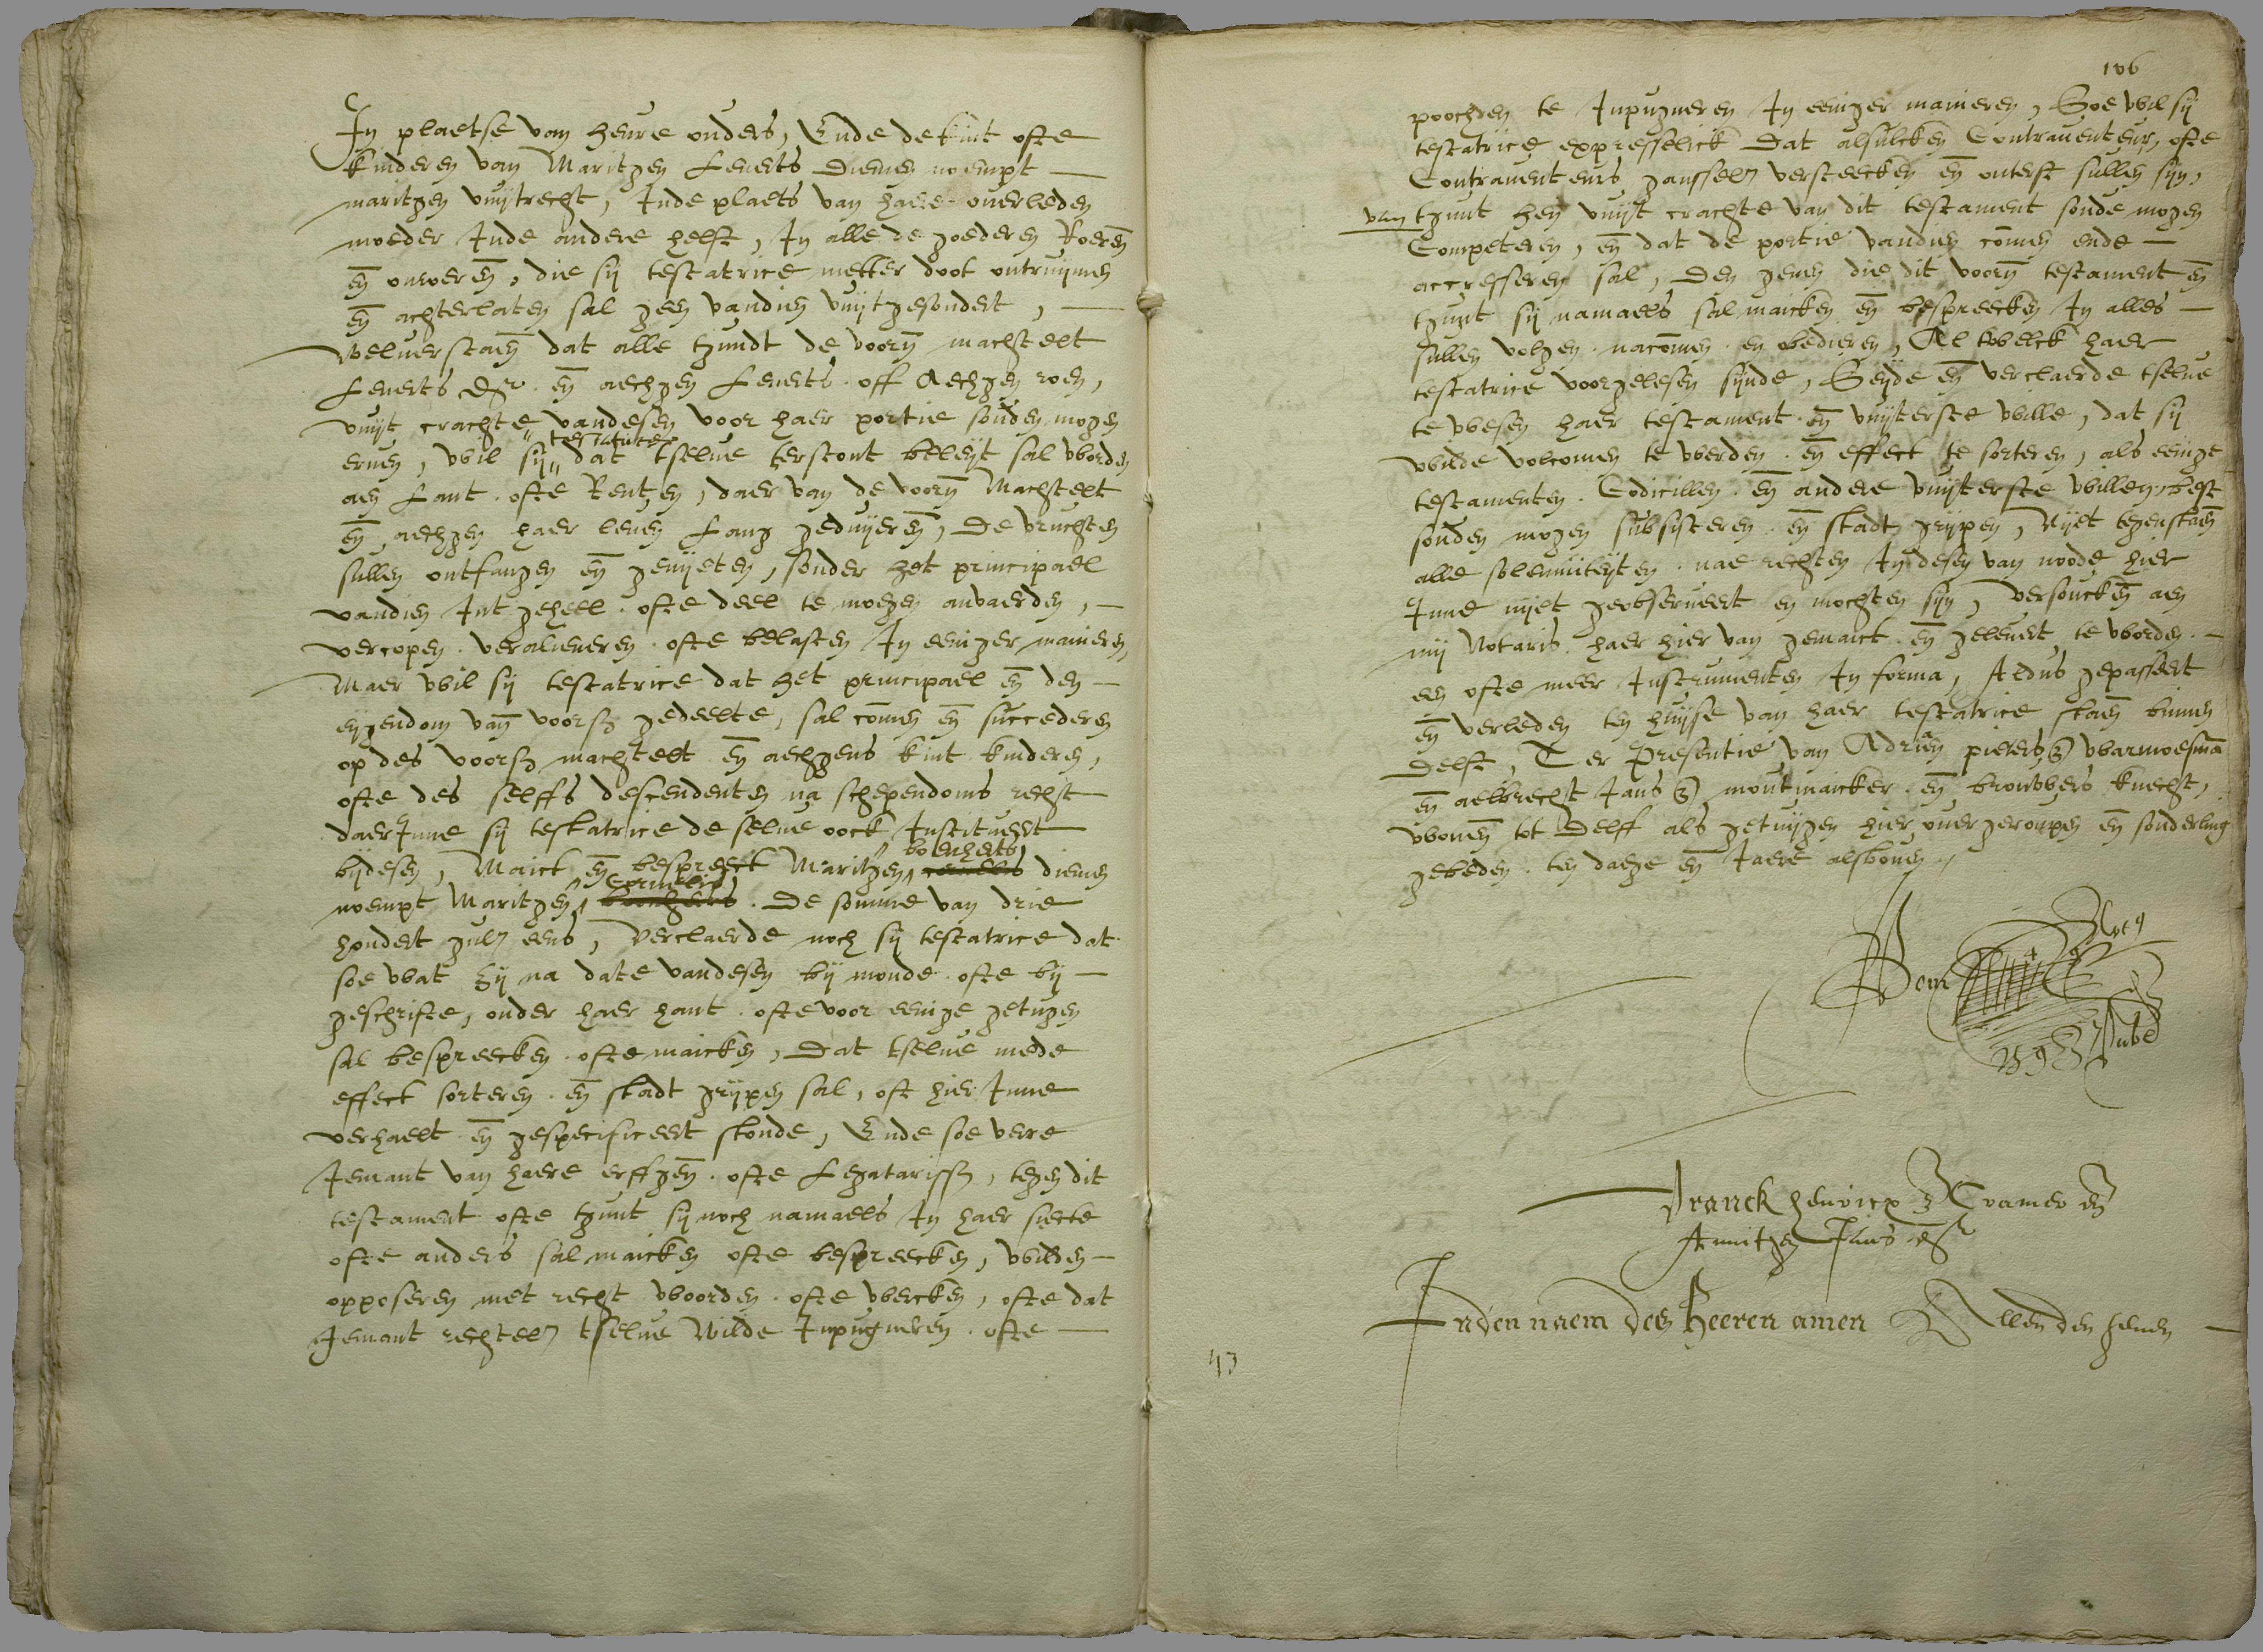 In plaetse van heure ouders, Ende de kint ofte
kinderen van Maritgen Lenerts diemen noempt
maritgen vuijtrecht, Inde plaets van haere overleden
moeder Inde andere helft, In alle de goederen Roeren̄
en̄ onroeren̄, die sij testatrice metter doot ontruijmen
en̄ achterlaten sal geen vandien vuijtgesondert,
Welverstaen̄ dat alle tgundt de voorn̄ machtelt
Lenerts dr. en̄ aechgen Lenerts off Aechgen roen,
vuijt crachte vandesen voor haer portie souden mogen
testatrice
erven, wil sij dat tselve terstont beleijt sal worden
aen Lant ofte Renten, daer van de voorn̄ Machtelt
en̄ aechgen haer leven Lang geduijeren̄, de vruchten
sullen ontfangen en̄ genijeten, sonder het principael
vandien Int geheel ofte deel te mogen anvaerden,
vercopen veralieneren ofte belasten In eeniger manieren,
Maer wil sij testatrice dat het principael en̄ den
eijgendom van̄ voorsz gedeelte, sal com̄en en̄ succederen
op des voorsz machtelt en̄ aechgens kint kinderen,
ofte des selffs descendenten na schependoms recht
daer Inne sij testatrice de selve oock Institueert
boenherts
bijdesen, Maict en̄ bespreect Maritgen diemen
Cornelis
noempt Maritgen. De somme van drie
hondert guln eens, Verclaerde noch sij testatrice dat
soe wat zij na date vandesen bij monde ofte bij
geschrifte, onder haer hant ofte voor eenige getugen
sal bespreecken ofte maicken, Dat tselve mede
effect sorteren en̄ stadt grijpen sal, oft hier Inne
verhaelt en̄ gespecificeert stonde, Ende soe verre
Iemant van haere erffgen̄ ofte Legatarissz, tegen dit
testament ofte tgunt sij noch namaels In haer siecte
ofte anders sal maicken ofte bespreecken, wilden
opposeren met recht woorden ofte wercken, ofte dat
Iemant rechteln tselve Wilde Inpugneren ofte
106
poochden te Inpugneren In eeniger manieren, Soe wil sij
testatrice expresselick Dat alsulcken Contraventeur, ofte
Contraventeurs gansseln versteecken en̄ onterft sullen sijn,
van tgunt hen vuijt crachte van dit testament soude mogen
Competeren, en̄ dat de portie vandien com̄en ende
accresseren sal, den genen die dit voorn̄ testament en̄
tgunt sij namaels sal maicken en̄ bespreecken In alles
sullen volgen nacom̄en en obedieren, Al twelck haer
testatrice voorgelesen sijnde, Seijde en̄ verclaerde tselve
te wesen haer testament en̄ vuijterste wille, dat sij
wilde volcomen te werden en̄ effect te sorteren, als eenige
testamenten Codicillen en̄ andere vuijterste willen best
souden mogen subsisteren en̄ stadt grijpen, Nijet tegenstaen̄
alle solemniteijten nae rechten In desen van noode hier
Inne nijet geobserveert en mochten sijn, versoucken̄ aen
mij Notaris haer hier van gemaict en̄ gelevert te worden
een ofte meer Instrumenten In forma, Aldus gepasseert
en̄ verleden ten huijse van haer testatrice staen̄ binnen
Delft, Ter Presentie van Adriaen pietersz) warmoesman
en̄ aelbrecht Jansz) moutmaicker en̄ brouwers knecht,
wonen̄ tot Delff als getuijgen hier over geroupen en̄ sonderling
gebeden ten daege en̄ Iaere alsboven
Franck henricx z Cramer en̄
Annitgen Jans dr
Inden naem des Heeren amen Allen den genen
43